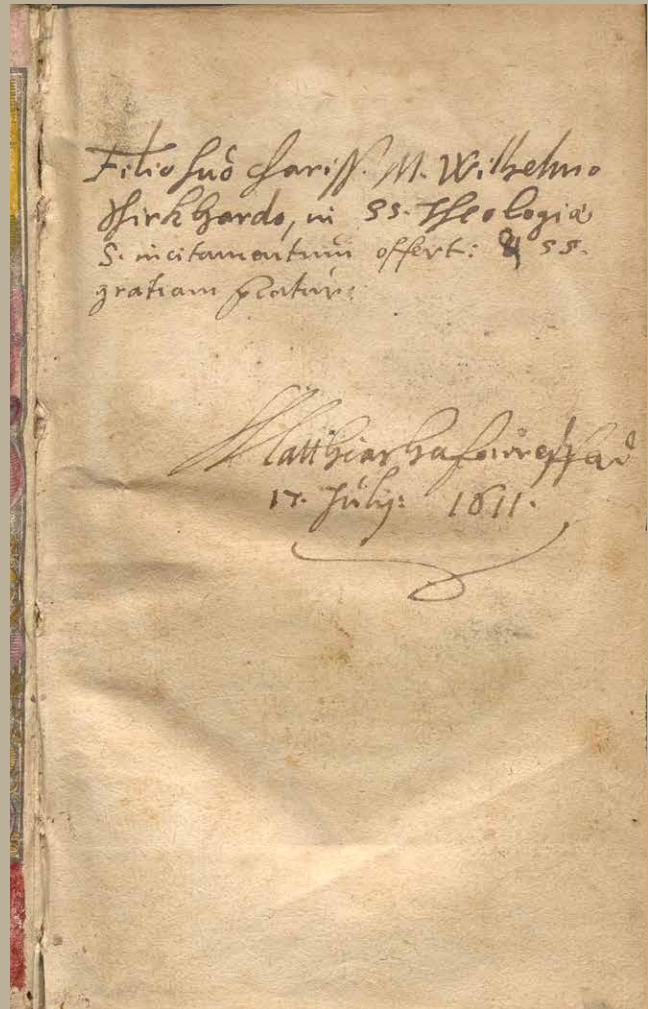 Filio suo chariss. M. Wilhelmo
in SS. Theologiae
S. incitamentum offert: & SS.
gratiam precatur:
Matthias Hafenreffer D
17. Julij: 1611.